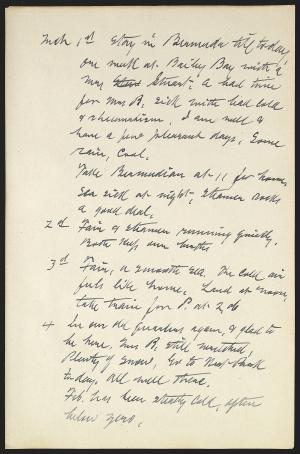 Mch 1st Stay in Bermuda till today,
one week at Bailey Bay with a
Mag Stuart. A bad time
for Mrs B. sick with bad cold
& rheumatism, I am well &
have a few pleasant days, Some
rain, Cool.
Take Bermudian at 11 for home,
Sea sick at night, Steamer rocks
a good deal,
2d Fair & steamer running quietly.
Both keep our berths
3d Fair, a smooth sea. The cold air
feels like home. Land at noon,
take train for P. at 2.06
4 In our old quarters again, & glad to
be here. Mrs B. still wretched,
Plenty of snow, Go to West Park
today, all well there.
Feb. has been steady cold, often
below zero.